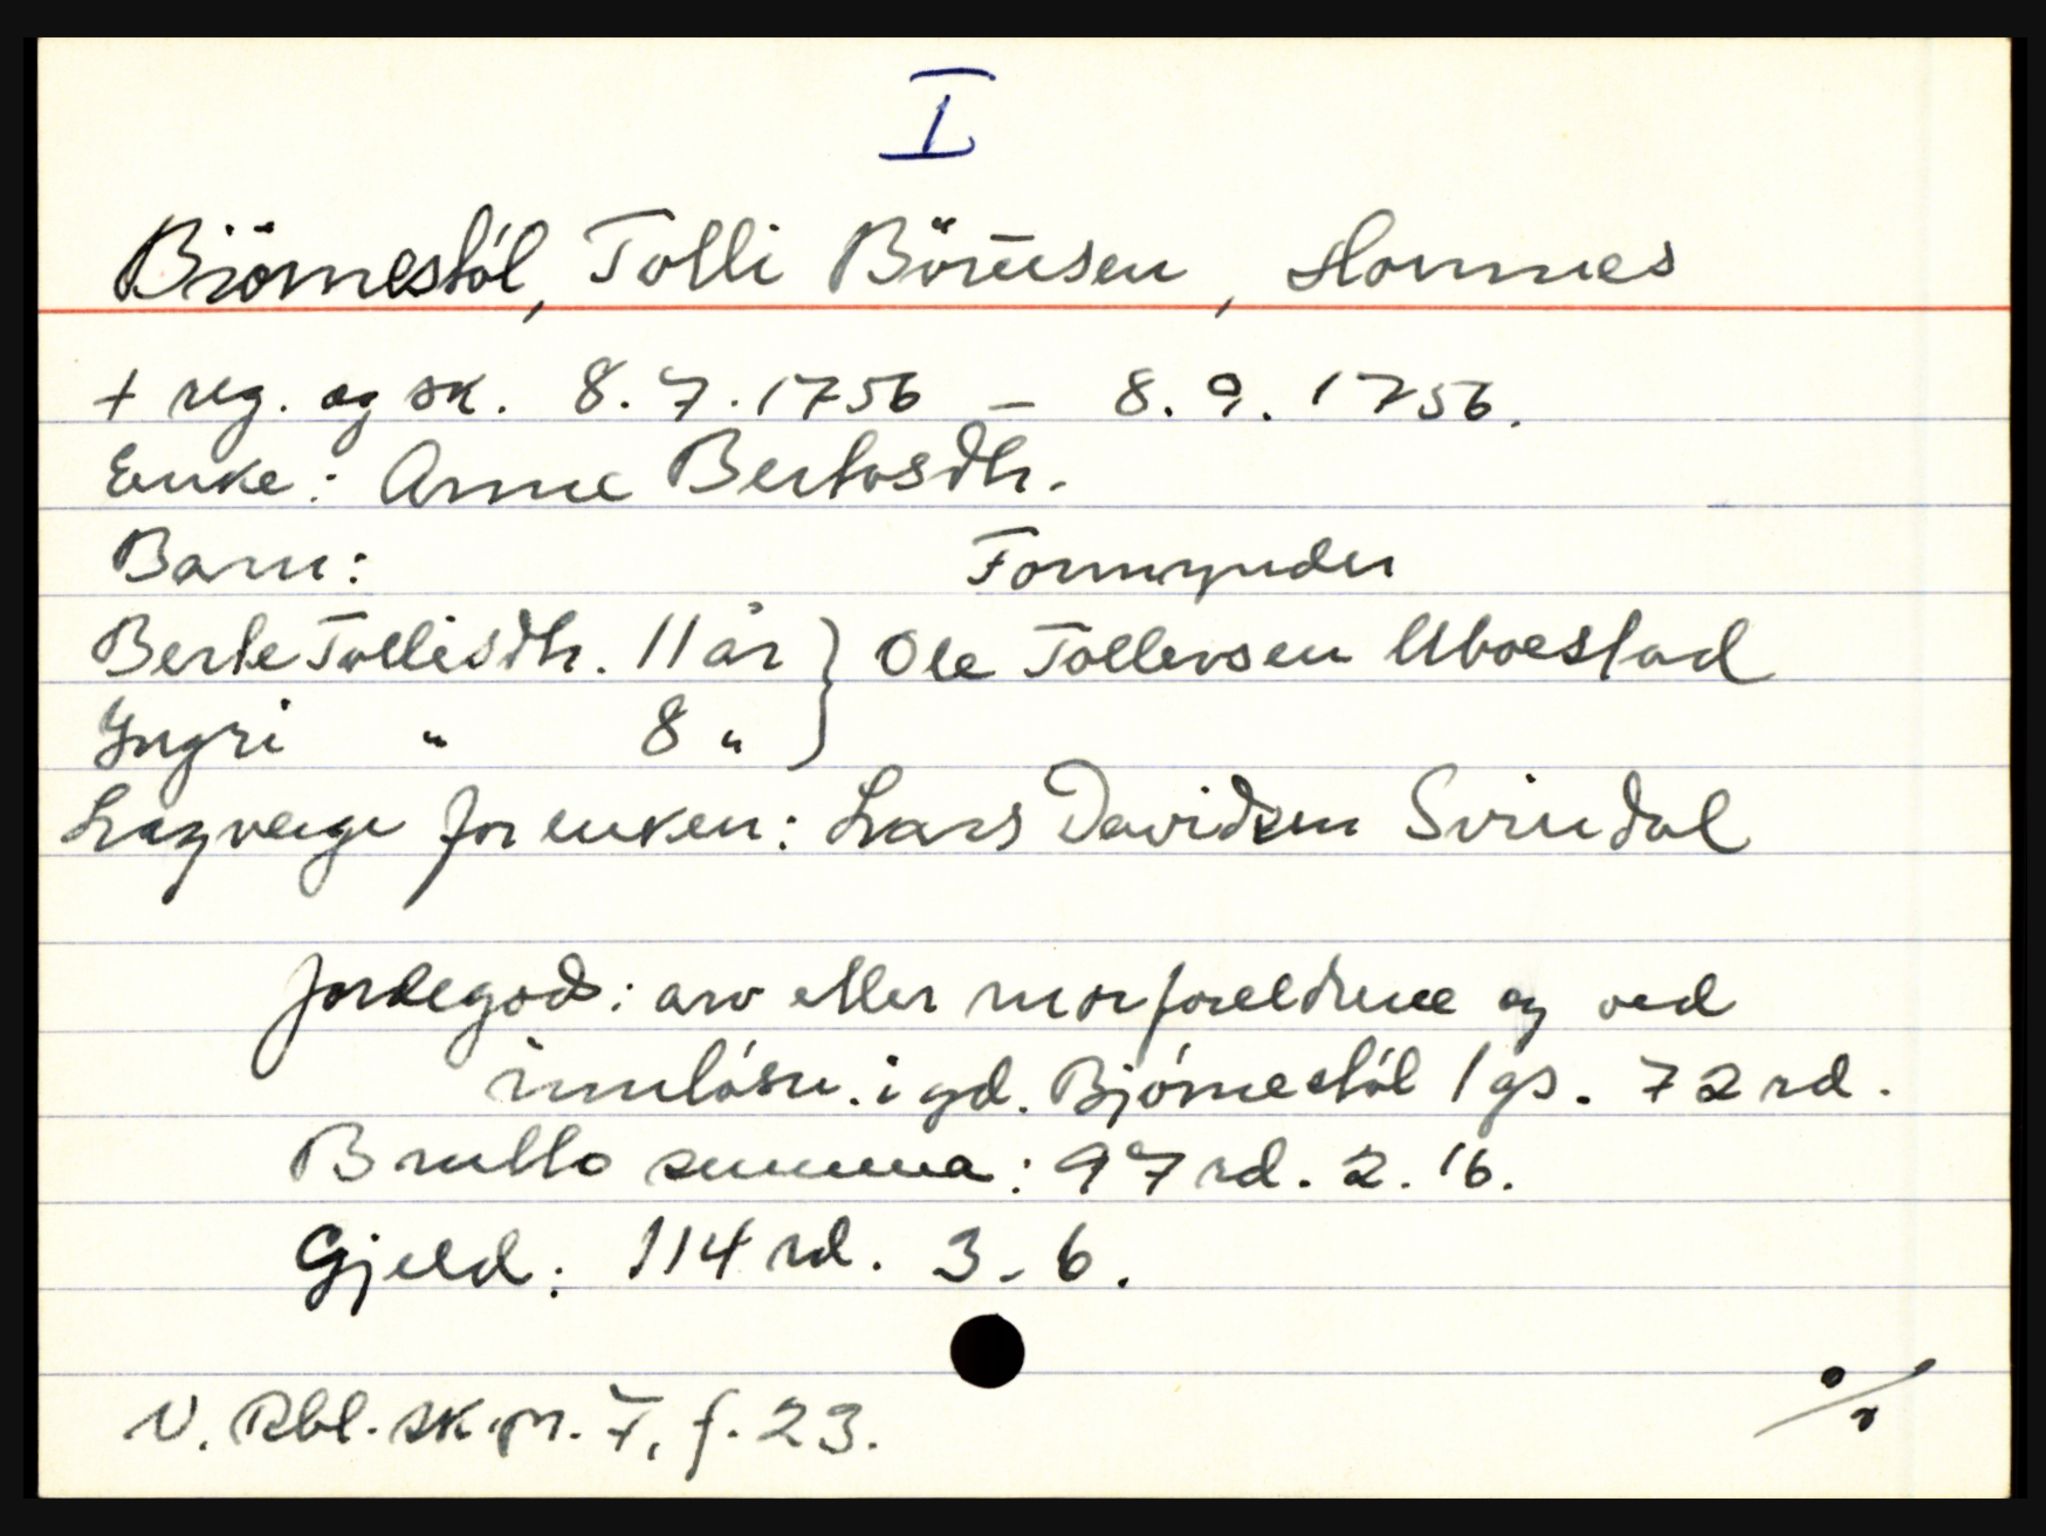 I
Biörnestöl, Tolli Börüsen, Homnes
+ reg. og sk. 8.7.1756 – 8.9.1756.
Enke: Anne Bertosdtr.
Barn: Formynder
Berte Tollisdtr. 11 år } Ole Tollevsen Uboestad
Yngri " 8 "
Lagverge for enken: Lars Davidsen Svindal
Jordegods: arv etter morforeldrene og ved
innlösn. i gd. Bjórnestól 1 gs. 72 rd.
Brutto summa: 97 rd. 2. 16.
Gjeld: 114 rd. 3-6.
N. Rbl. sk.pr. 7, f. 23.